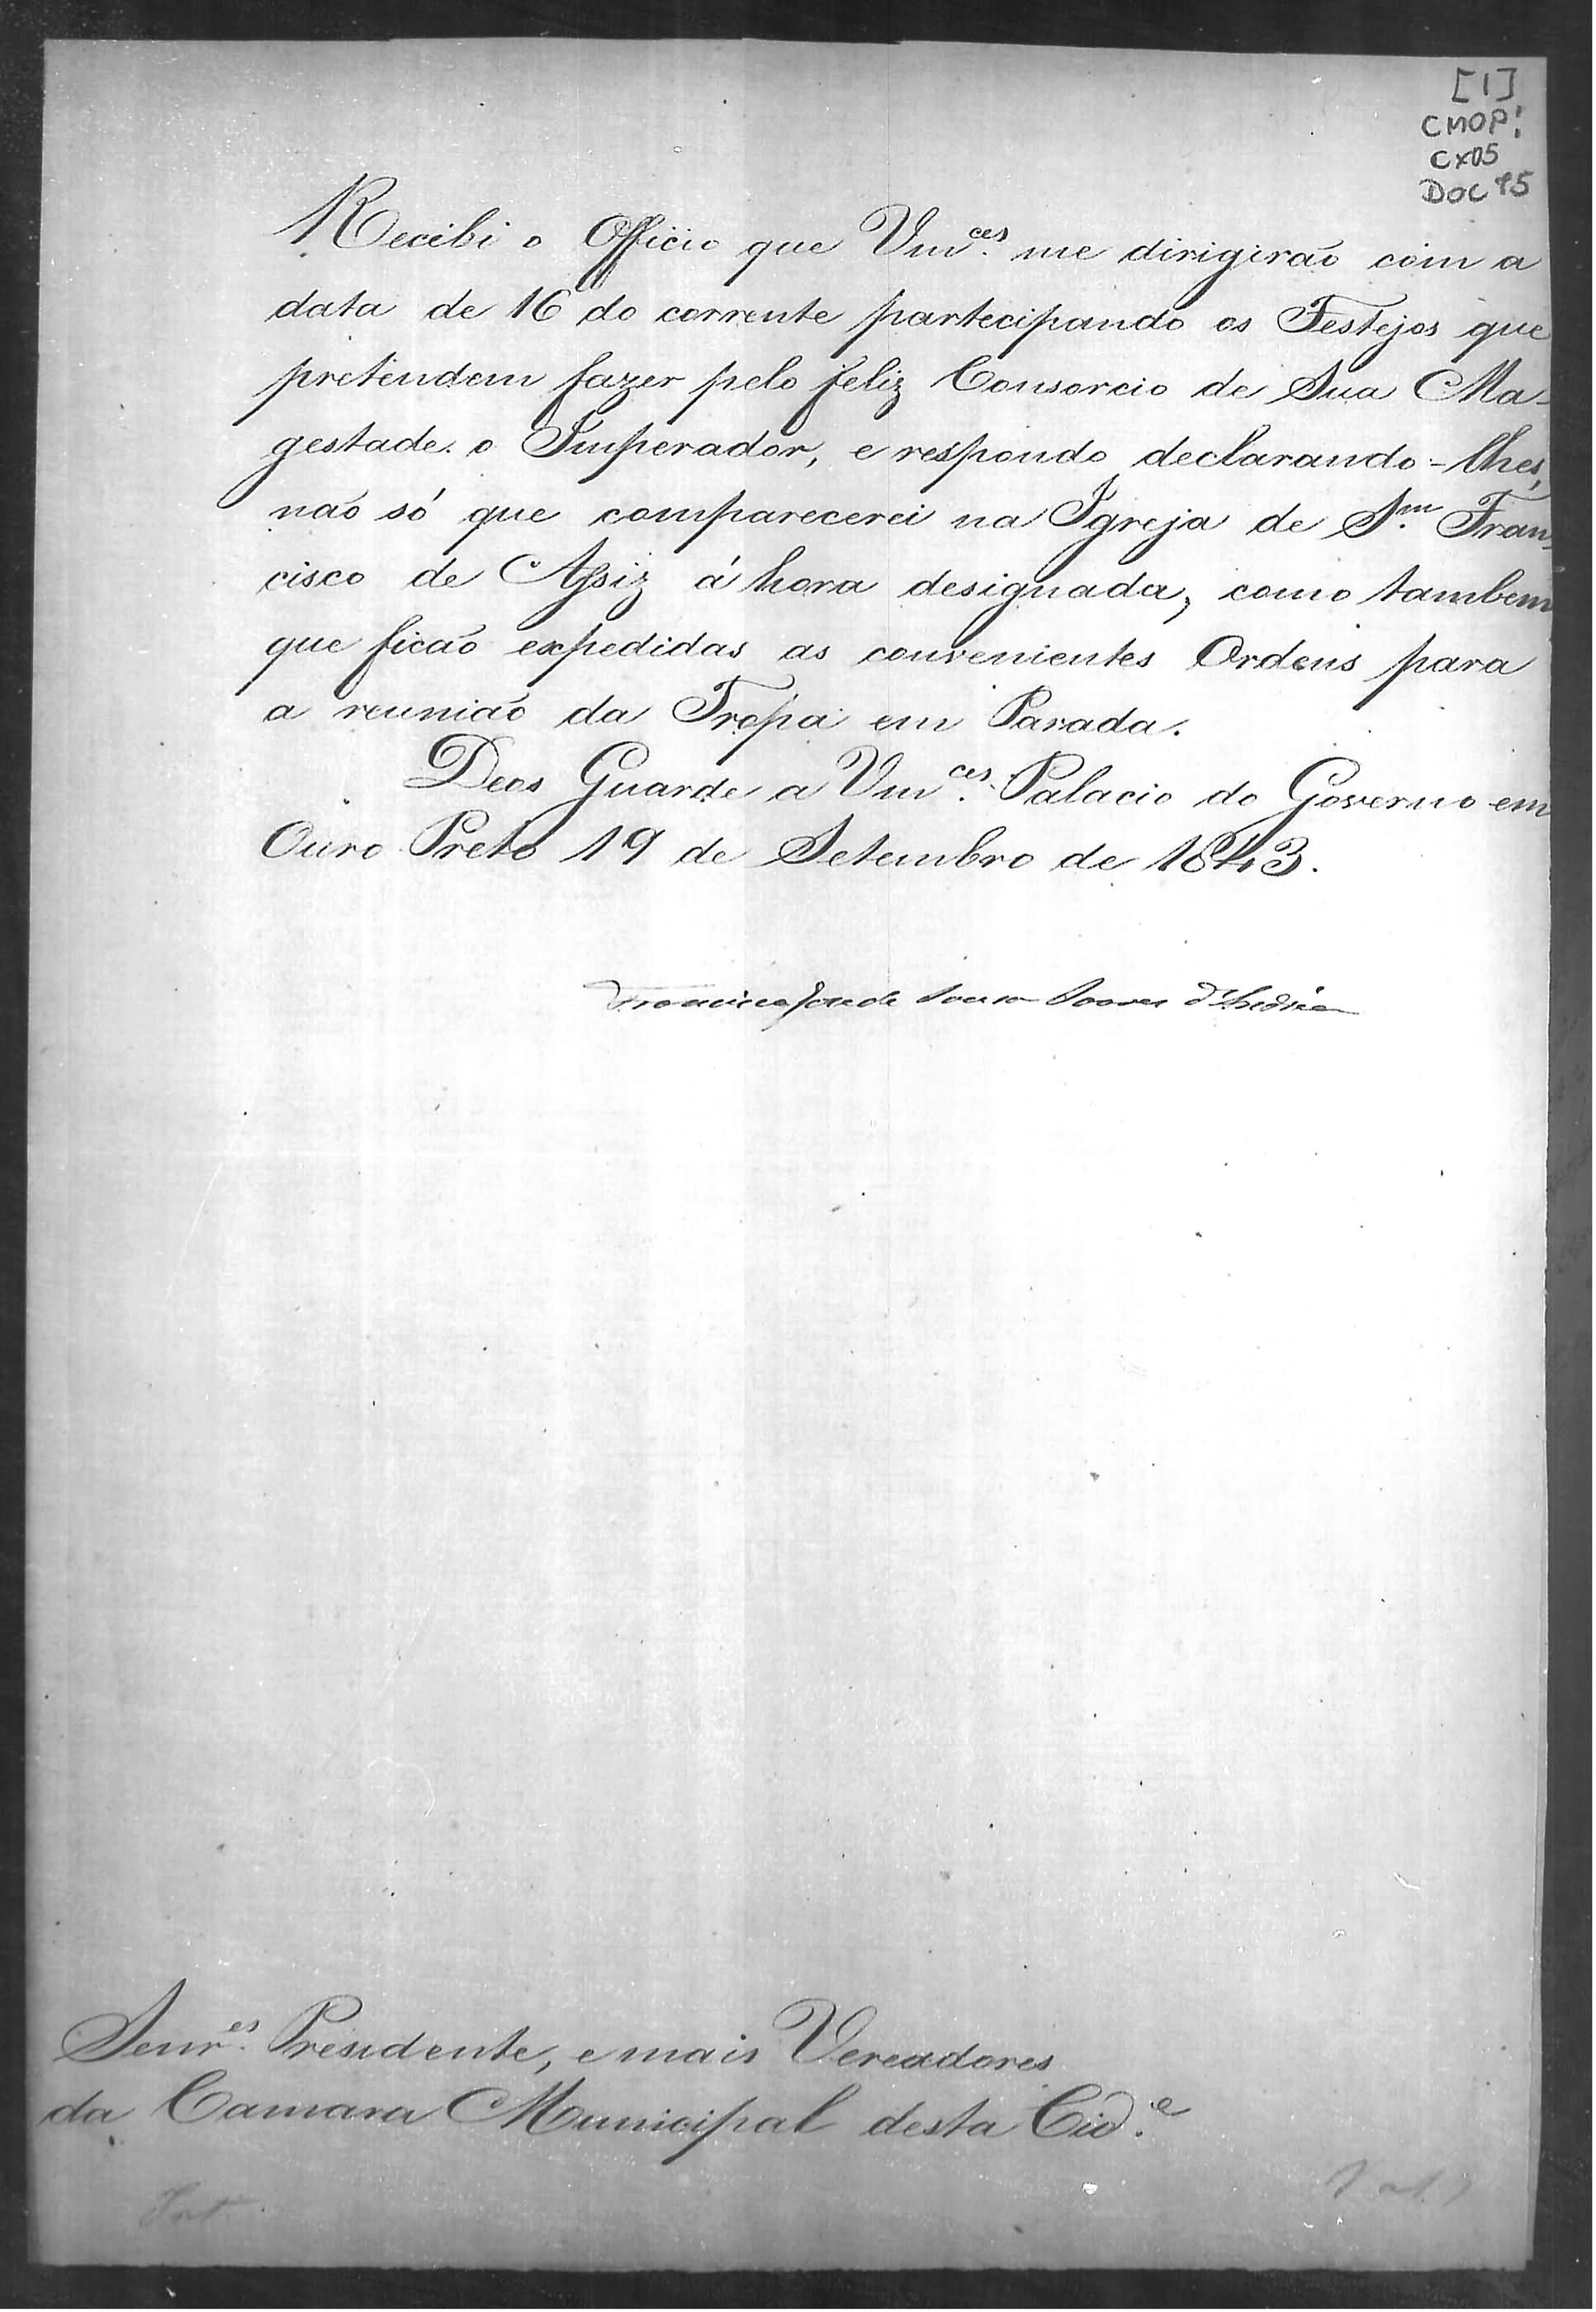 [1]
CMOP!
CX05
DOC 95
Recebi o Officio que Vm.ces me dirigirão com a
data de 16 do corrente partecipando os Festejos que
pretendem fazer pelo feliz Consorcio de Sua Ma-
gestade o Imperador, e respondo declarando-lhes,
não só que comparecerei na Igreja de S.m Fran-
cisco de Assiz á hora designada, como tambem
que ficão expedidas as convenientes Ordens para
a reunião da Tropa em Parada.
Deos Guarde a Vm.ces Palacio do Governo em
Ouro Preto 19 de Setembro de 1843.
Francisco José de Souza Soares d'Andréa
Senr.es Presidente, e mais Vereadores
da Camara Municipal desta Cid.e